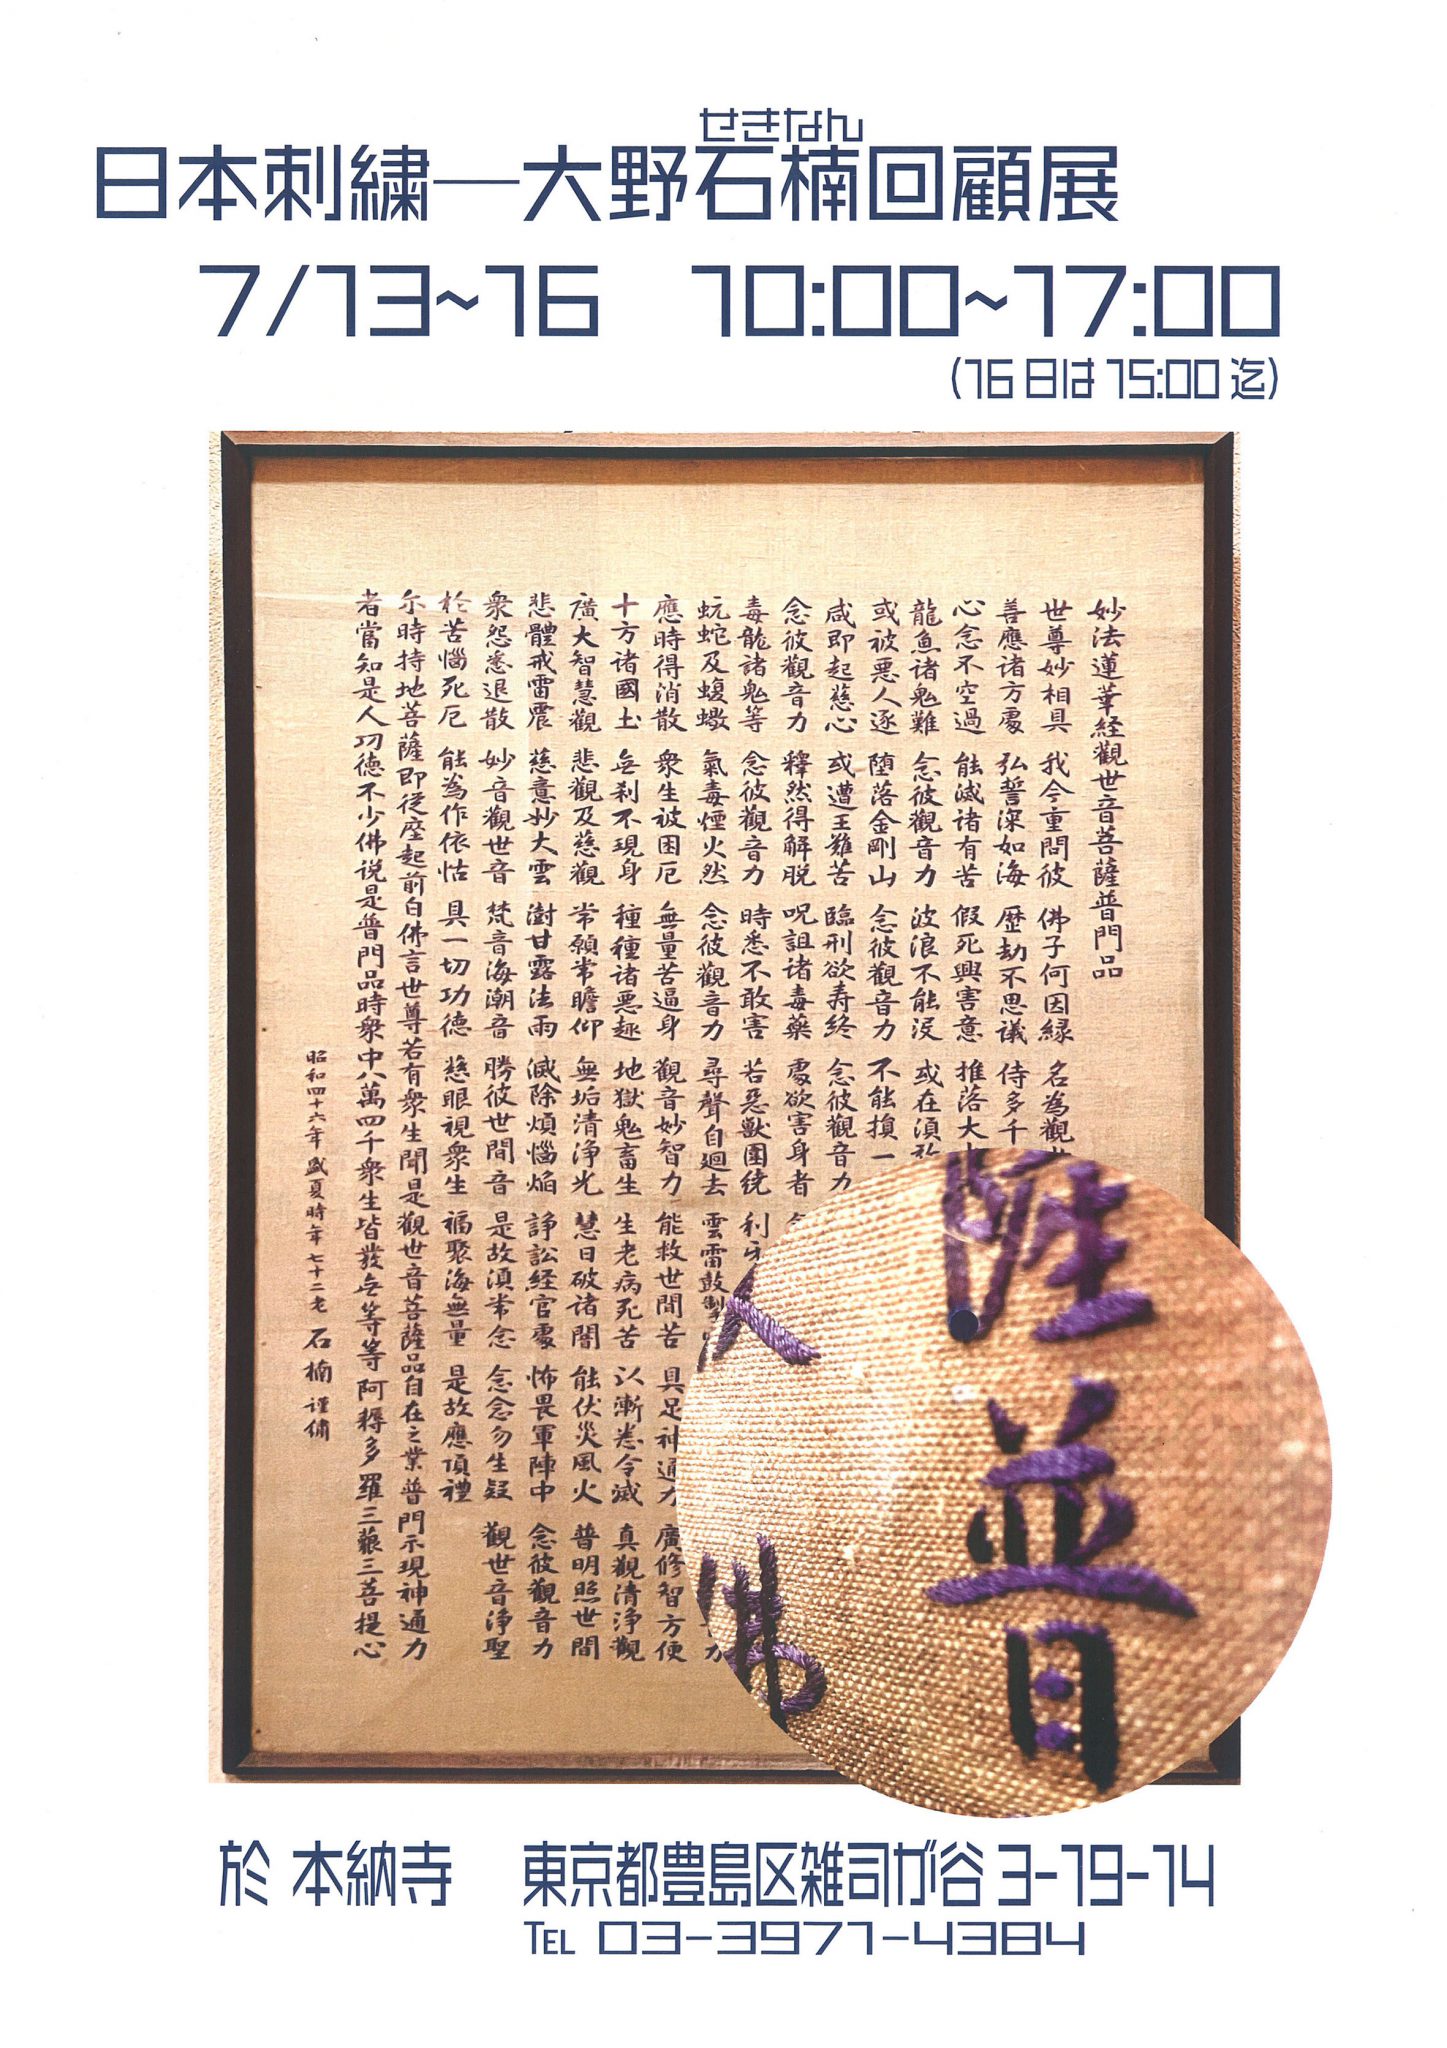 せきなん
日本刺繍―大野石楠回顧展
7/13~16 10:00~17:00
(16日は15:00迄)
妙法蓮華経觀世音菩薩普門品
世尊妙相具 我今重問彼 佛子何因緣 名為觀
善應诸方處 弘誓深如海 歴劫不思議 侍多千
心念不空過 能滅诸有苦 假死興害意 推落大
龍魚诸鬼難 念彼觀音力 波浪不能没 或在須
或被悪人逐 堕落金剛山 念彼觀音力 不能損一
咸即起慈心 或遭王難苦 臨刑欲寿終 念彼觀音力
念彼觀音力 釋然得解脱 呪詛诸毒藥 處欲害身者
毒龍諸鬼等 念彼觀音力 時悉不敢害 若惡獸圍繞 利
蚖蛇及蝮蠍 氣毒煙火然 念彼觀音力 尋聲自廻去 雲雷鼓掣 力
應時得消散 衆生被困厄 無量苦逼身 觀音妙智力 能救世間苦 具足神通力 廣修智方便
十方诸國土 無刹不現身 種種诸悪趣 地獄鬼畜生 生老病死苦 以漸悉令滅 真觀清浄觀
廣大智慧觀 悲觀及慈觀 常願常瞻仰 無垢清浄光 慧日破诸闇 能伏災風火 普明照世間
悲體戒雷震 慈意妙大雲 澍甘露法雨 滅除煩惱焔 諍訟経官處 怖畏軍陣中 念彼觀音力
衆怨悉退散 妙音觀世音 梵音海潮音 勝彼世間音 是故須常念 念念勿生疑 觀世音浄聖
於苦惱死厄 能為作依怙 具一切功徳 慈眼視衆生 福聚海無量 是故應頂禮
尓時持地菩薩即従座起前白佛言世尊若有衆生聞是觀世音菩薩品自在之業普門示現神通力
者當知是人功徳不少佛説是普門品時衆中八萬四千衆生皆發無等等阿耨多羅三藐三菩提心
昭和四十六年盛夏時年七十二老 石楠 謹繍
普
佛
於 本納寺 東京都豊島区雑司が谷3-19-14
TEL 03-3971-4384